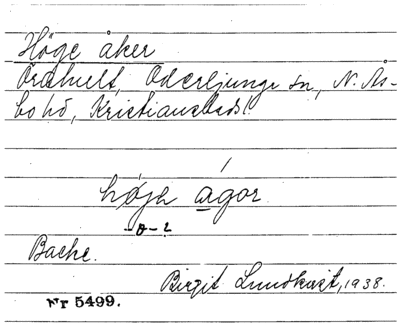 Höge åker
Örahult, Oderljunga sn, N. Ås-
bo hd, Kristianstads l.
høja agor
-o-2
Backe.
Birgit Lundkvist, 1938.
Nr 5499.